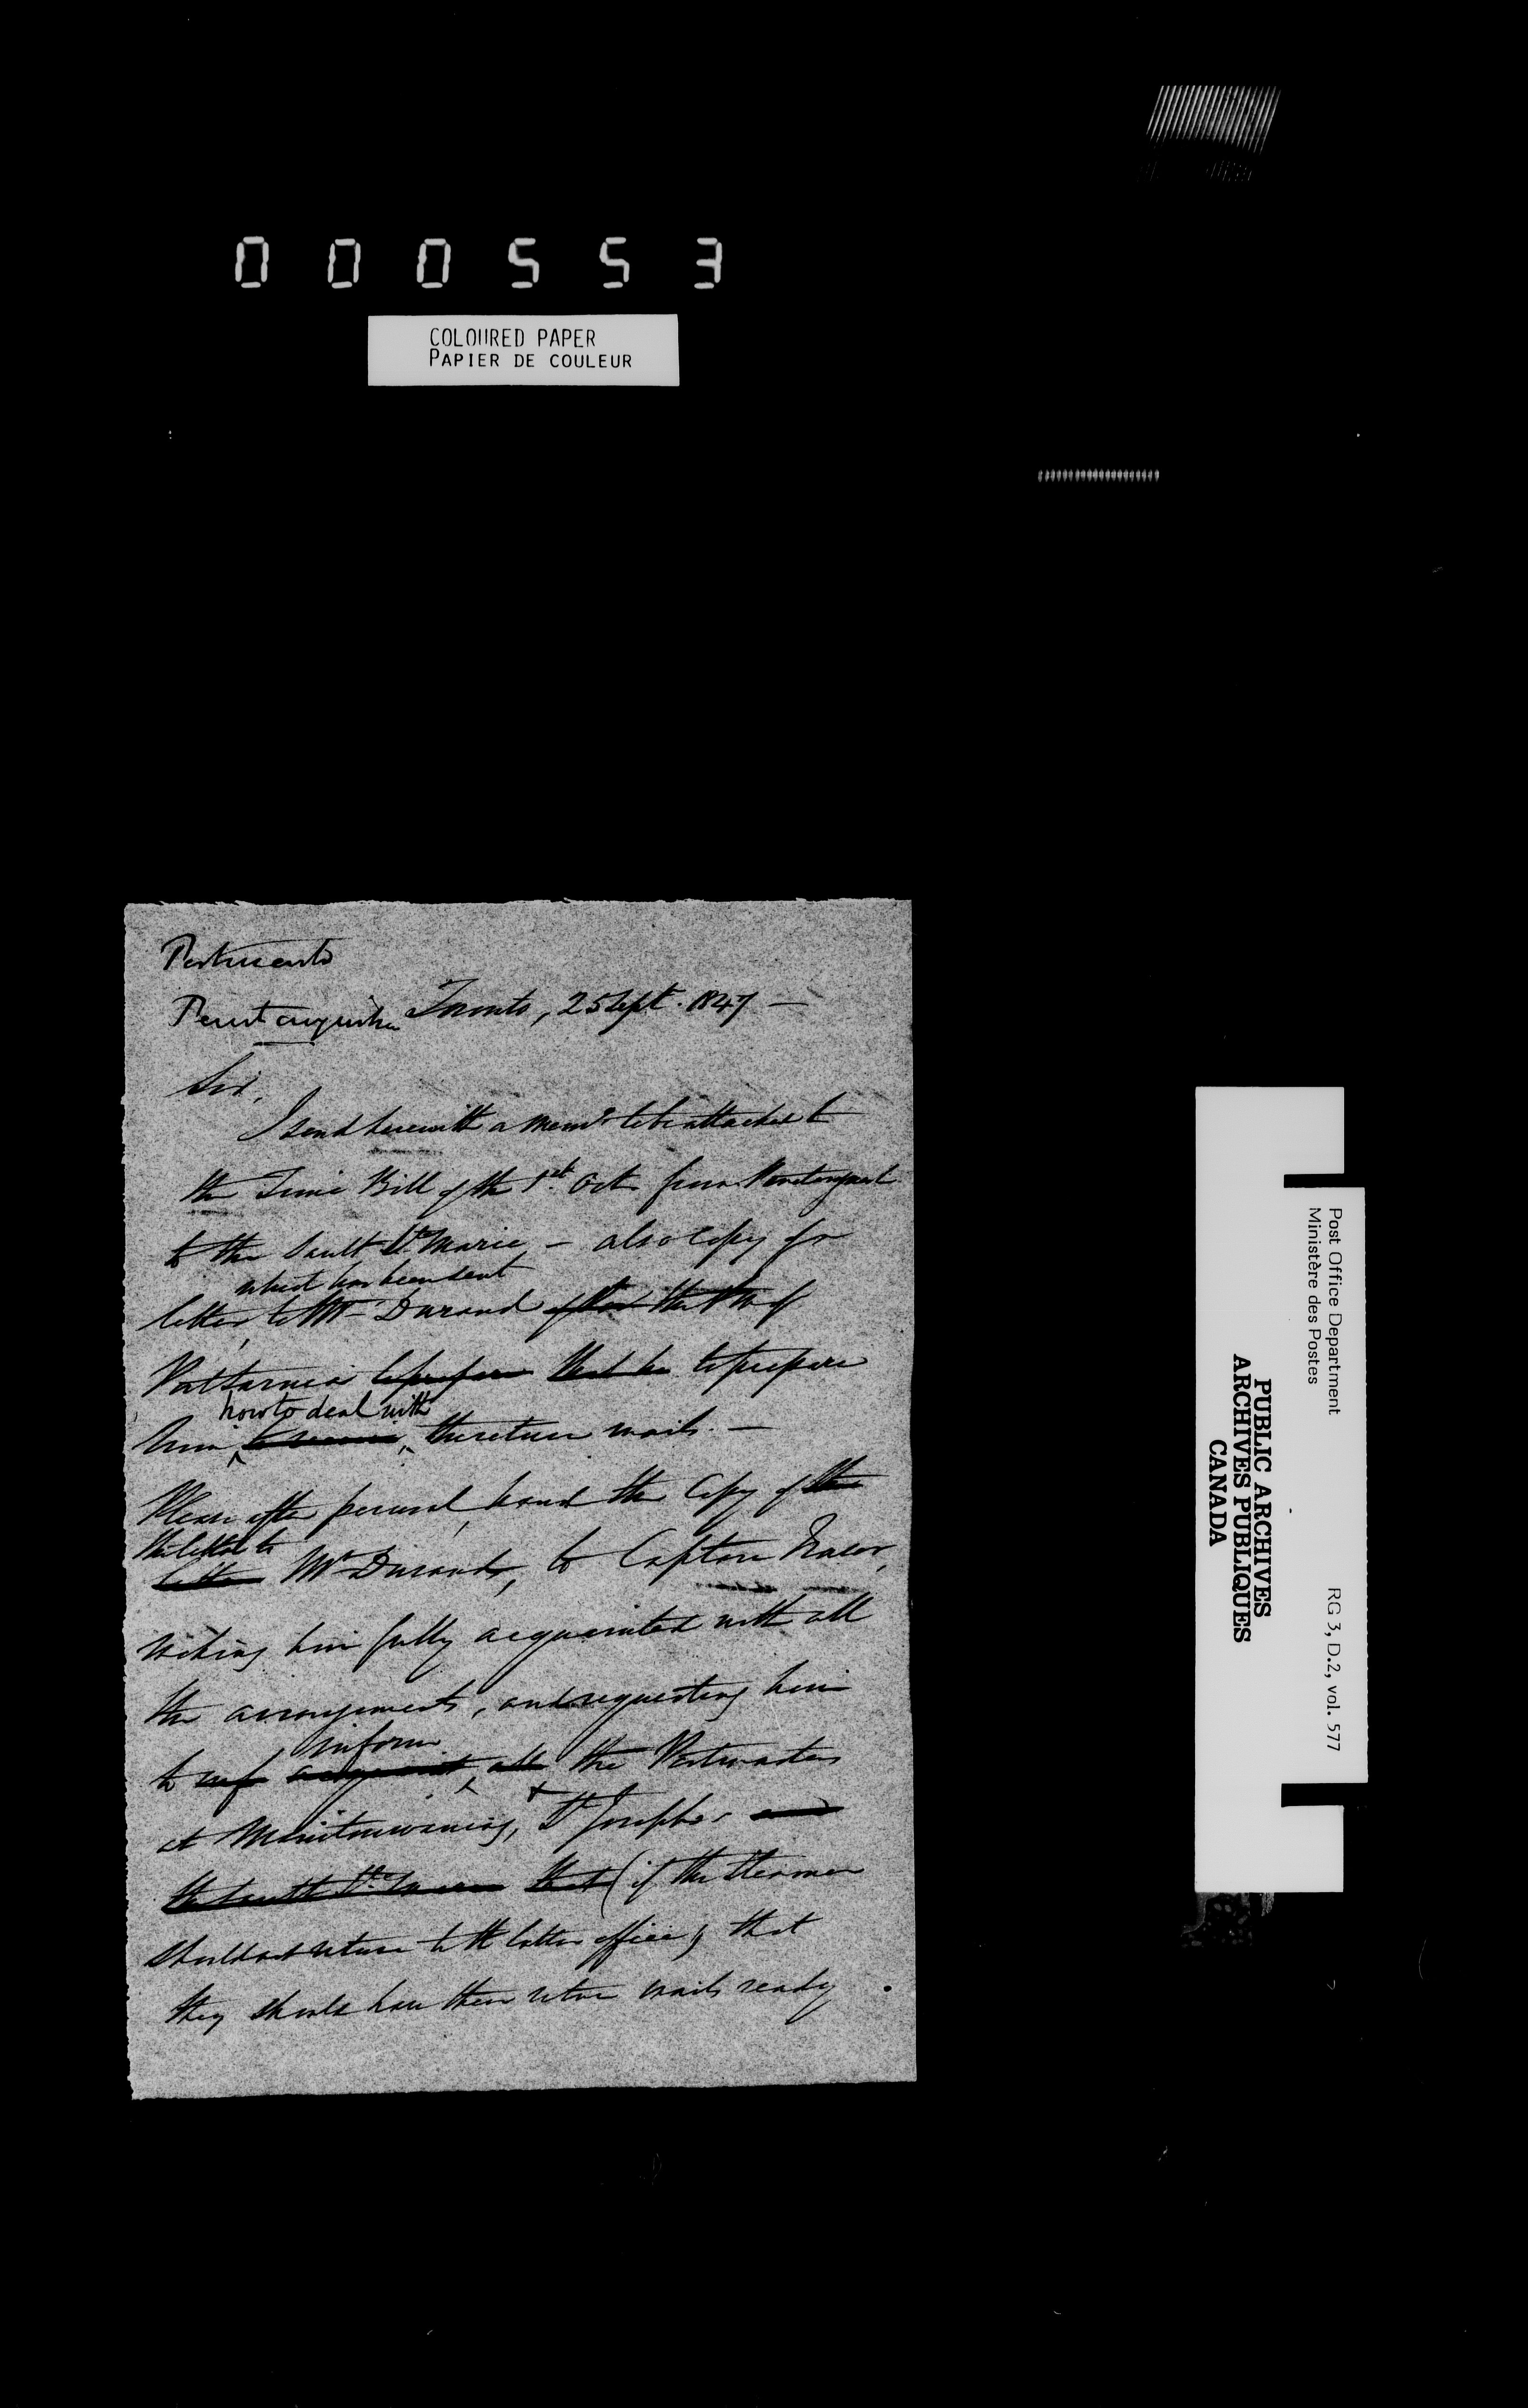 000553
COLOURED PAPER
PAPIER DE COULEUR
Toronto, 25 Sept. 1847 —
Sir,
I send herewith a memo to be attached to
the Time Bill of the 1st Oct. from
to the Sault Ste Marie, — also copy of a
which has been sent
letter to Mr Durand of
Port Sarnia to prepare
how to deal with
him the return mails. —
Please after perusal, hand the Copy of the
the letter to
letter Mr Durand, to Captain
making him fully acquainted with all
the arrangements, and requesting him
inform
to acquaint all the Postmasters
at Manitouwaning, St Josephs and
the Sault Ste Marie that (if the Steamer
should not return to the latter office) that
they should have their return mails ready
Post Office Department
Ministère des Postes
RG 3, D.2, vol. 577
PUBLIC ARCHIVES
ARCHIVES PUBLIQUES
CANADA